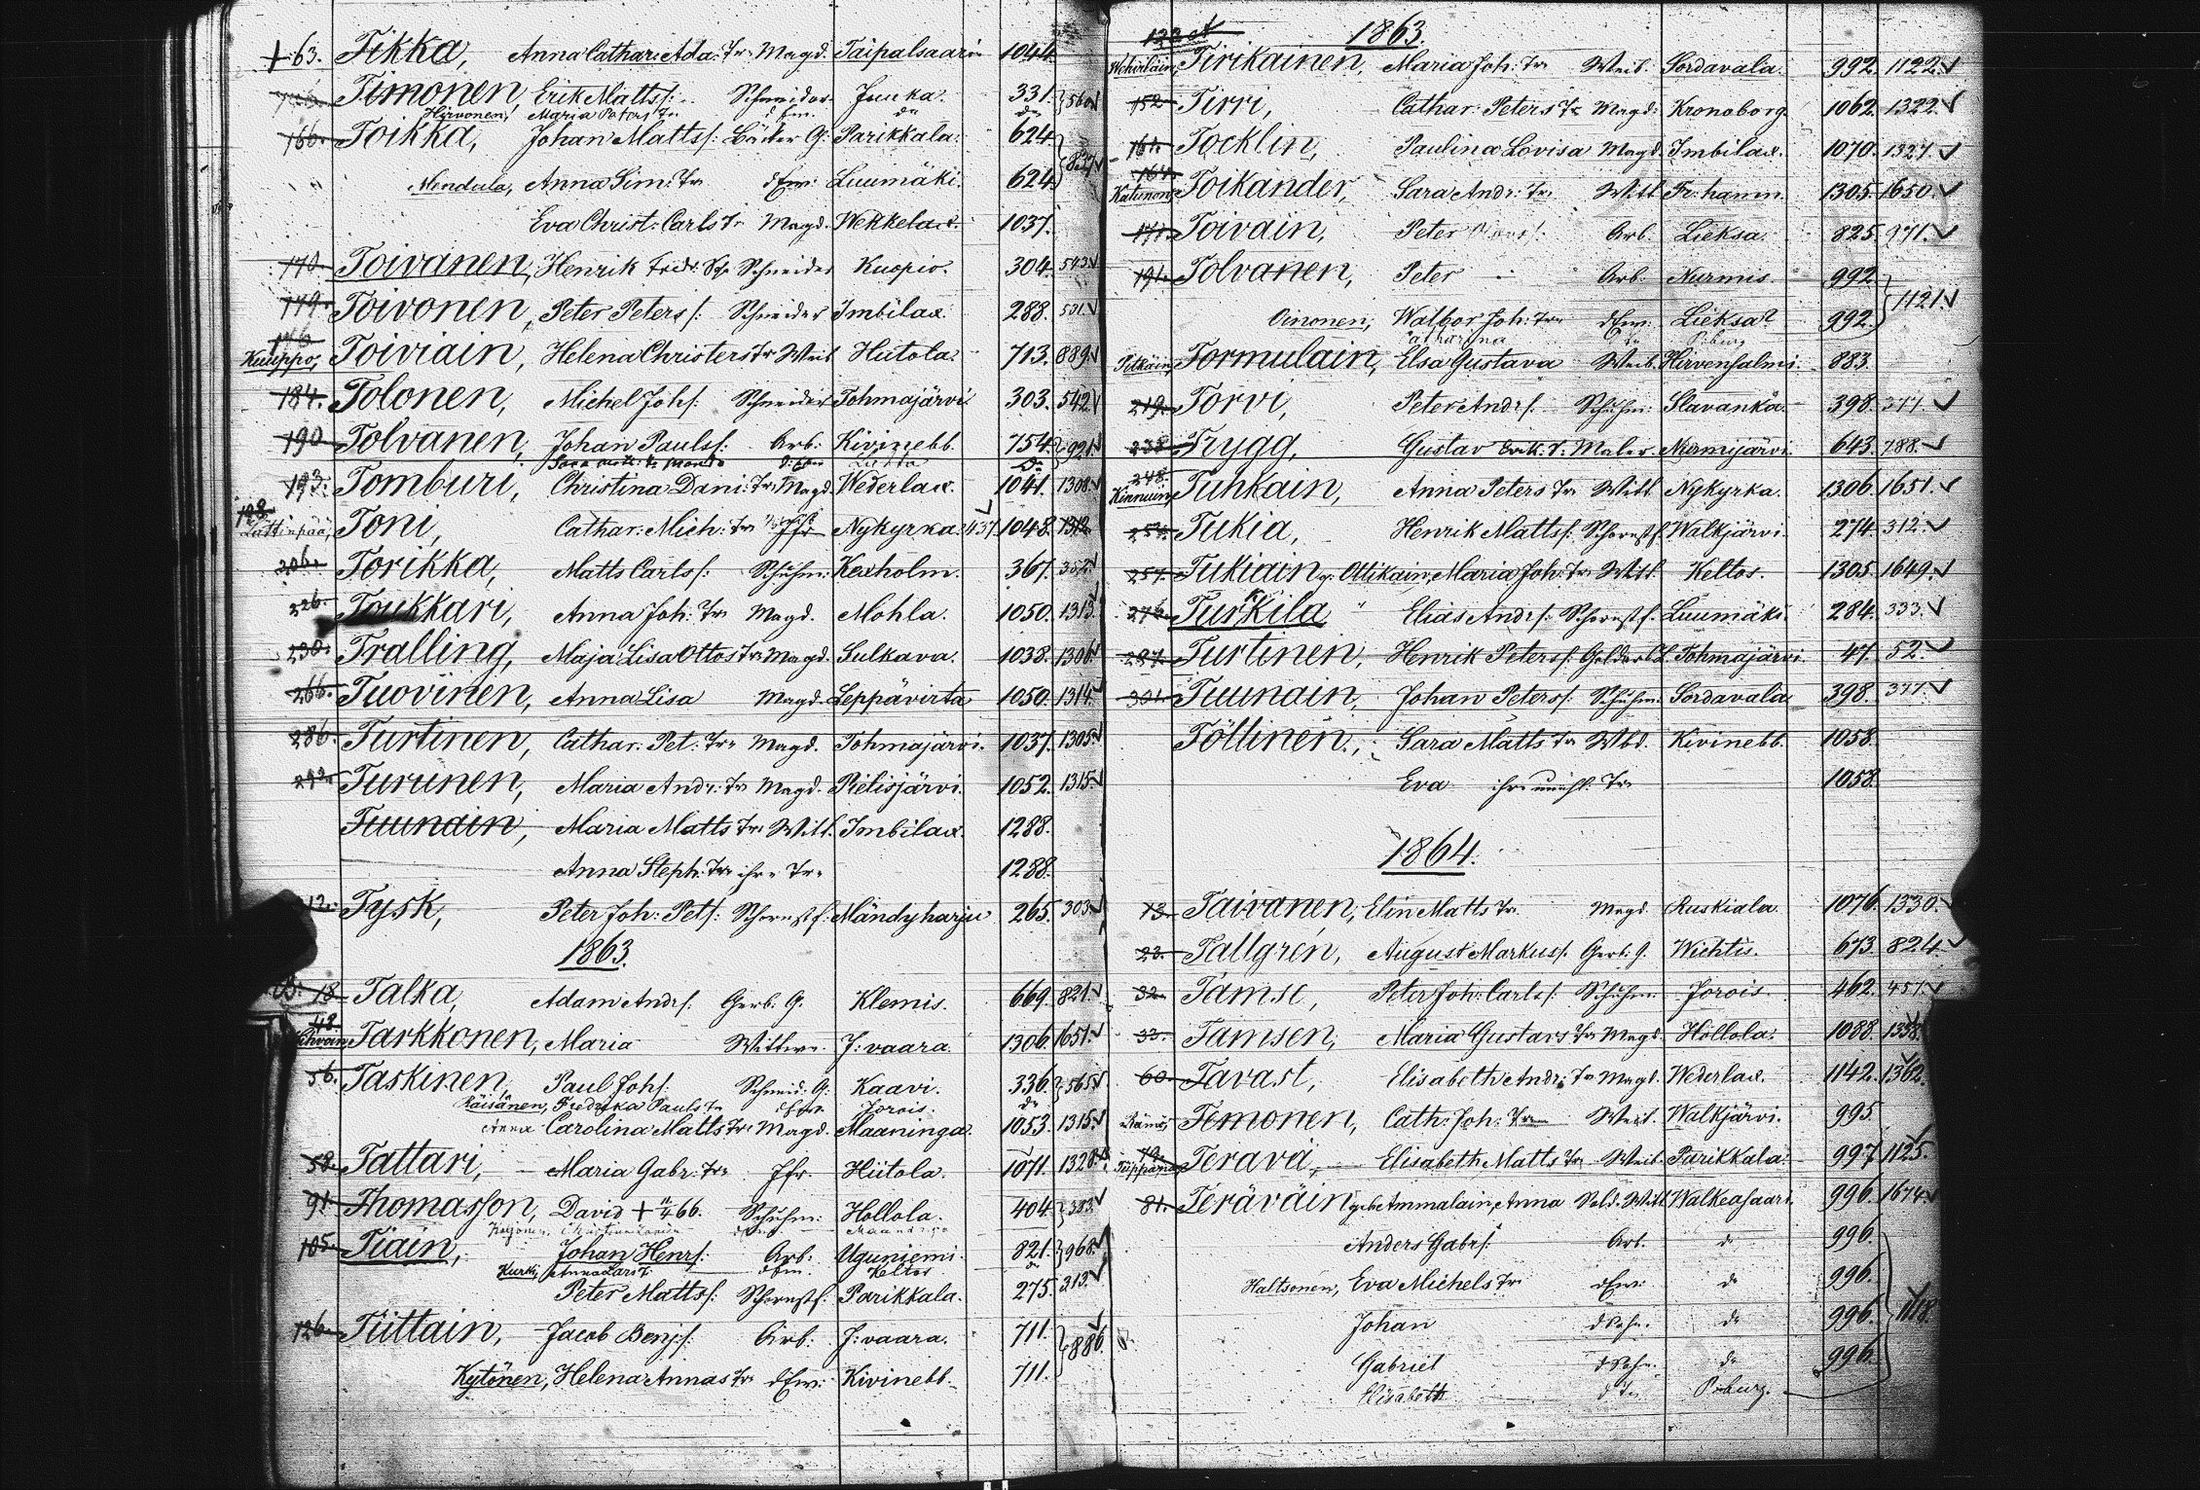 + 63. Tikka, Anna Cathar: Ada: Tr Magd. Taipalsaari 1044.
Timonen, Erik Matts/: Schneider Juuka. 331. 560
Hirvonen, Maria Peters Tr dEw. do do
166. Toikka, Johan Matts/: Bäcker G: Parikkala. 624
827
Mendula, Anna Sim: Tr dEw: Luumäki. 624
Eva Christ: Carls Tr Magd. Wekkelax. 1037.
170. Toivanen, Henrik Schneider Kuopio. 304. 543
179. Toivonen, Peter Peters/: Schneider Imbilax. 288. 501
176
Kauppo, Toiviain, Helena Christers Tr Weib Hiitola. 713. 889
184. Tolonen, Michel Joh/. Schneider Tohmajärvi 303. 542
190 Tolvanen, Johan Pauls/: Arb: Kivinebb. 754. 921
193. Tomburi, Christina Dani: Tr Magd. Wederlax. 1041. 1308
198.
Lättinpää, Toni, Cathar: Mich: Tr Nykyrka. 437. 1048. 1312
206. Torikka, Matts Carls/: Schuhm: Kexholm. 367. 352
226. Toukkari, Anna Joh: Tr Magd. Mohla. 1050. 1313
230. Tralling, Maja Lisa Ottos Tr Magd. Sulkava. 1038. 1306
266. Tuovinen, Anna Lisa Magd. Leppävirta 1050. 1314
286. Turtinen, Cathar: Pet: Tr Magd. Tohmajärvi. 1037. 1305
293. Turunen, Maria Andr: Tr Magd. Pielisjärvi. 1052. 1315
Tuunain, Maria Matts Tr Witt. Imbilax. 1288.
Anna Steph: Tr ihre Tr 1288.
312. Tysk, Peter Joh: Pet/: Schornstf: Mändyharju 265. 303
1863.
18. Talka, Adam Andr/. Gerb. G. Klemis. 669. 821
48.
Tarkkonen, Maria Wittwe J:vaara. 1306. 1651
56. Taskinen, Paul Joh/. Schneid: G: Kaavi. 336. 565
Räisänen, Fredrika Pauls Tr dEw Jorois. do
Anna Carolina Matts Tr Magd. Maaninga. 1053. 1315
58. Tattari, Maria Gabr: Tr Jfr. Hiitola. 1071. 1328
91. Thomasson, David + 11/4 66. Schuhm: Hollola. 404. 383
105. Tiain, Johan Henr/: Arb: Uguniemi. 821. 968
Kurki, Anna Lars Tr dEw. Keltos do
Peter Matts/. Schornstf. Parikkala. 275. 313
126. Tiittain, Jacob Benj/: Arb: J:vaara. 711.
886
Kytönen, Helena Annas Tr dEw: Kivinebb. 711.
1863.
Tirikainen, Maria Joh: Tr Weib. Sordavala. 992. 1122.
152. Tirri, Cathar: Peters Tr Magd: Kronoborg. 1062. 1322.
161. Tocklin, Paulina Lovisa Magd. Imbilax. 1070. 1327.
164.
Katunen, Toikander, Sara Andr: Tr Witt. Fr:hamn. 1305. 1650.
171. Toivain, Peter Arb. Lieksa. 825. 971.
191. Tolvanen, Peter Arb: Nurmis. 992
1121
Oinonen, Walbor Joh: Tr dEw: Lieksa 992.
Catharina do P:burg
Pitkäin, Tormulain, Elsa Gustava Weib. Hirvensalmi. 883.
219. Torvi, Peter Andr/. Schuhm: Slavanka. 398. 377.
238. Trygg, Gustav Erik: S. Maler. Nurmijärvi. 643. 788
248.
Kinnuin, Tuhkain, Anna Peters Tr Witt. Nykyrka. 1306. 1651.
252. Tukia, Henrik Matts/. Schornstf. Walkjärvi. 274. 312
257. Tukiain g. Ollikain, Maria Joh: Tr Witt. Keltos. 1305. 1649.
276. Turkila Elias Andr/: Schornstf. Luumäki. 284. 333
297. Turtinen, Henrik Peters/. Tohmajärvi. 47. 52.
301. Tuunain, Johan Peters/: Schuhm. Sordavala 398. 377.
Töttinen, Sara Matts Tr Wbd. Kivinebb. 1058.
Eva ihre unehl. Tr 1058.
1864.
13. Taivanen, Elin Matts Tr Magd. Ruskiala. 1076. 1330.
23. Tallgrén, August Markus/. Gerb. G. Wichtis. 673. 824.
32. Tamse, Peter Joh: Carls/: Schuhm Jorois. 462. 451.
33. Tamsen, Maria Gustavs Tr Magd. Hollola. 1088. 1338.
60. Tavast, Elisabeth Andr: Tr Magd. Wederlax. 1142. 1362.
Temonen, Cath: Joh: Tr Weib. Walkjärvi. 995
79.
Terävä, Elisabeth Matts Tr Weib. Parikkala. 997. 1125.
81. Teräväin geb. Ammalain, Anna Sold. Witt. Walkeasaari. 996. 1674
Anders Gabr/. Arb. do 996.
Haltsonen, Eva Michels Tr dEw: do 996.
Johan dSohn. do 996. 1118.
Gabriel dSohn. do 996.
Elisabeth d Tr P:burg.